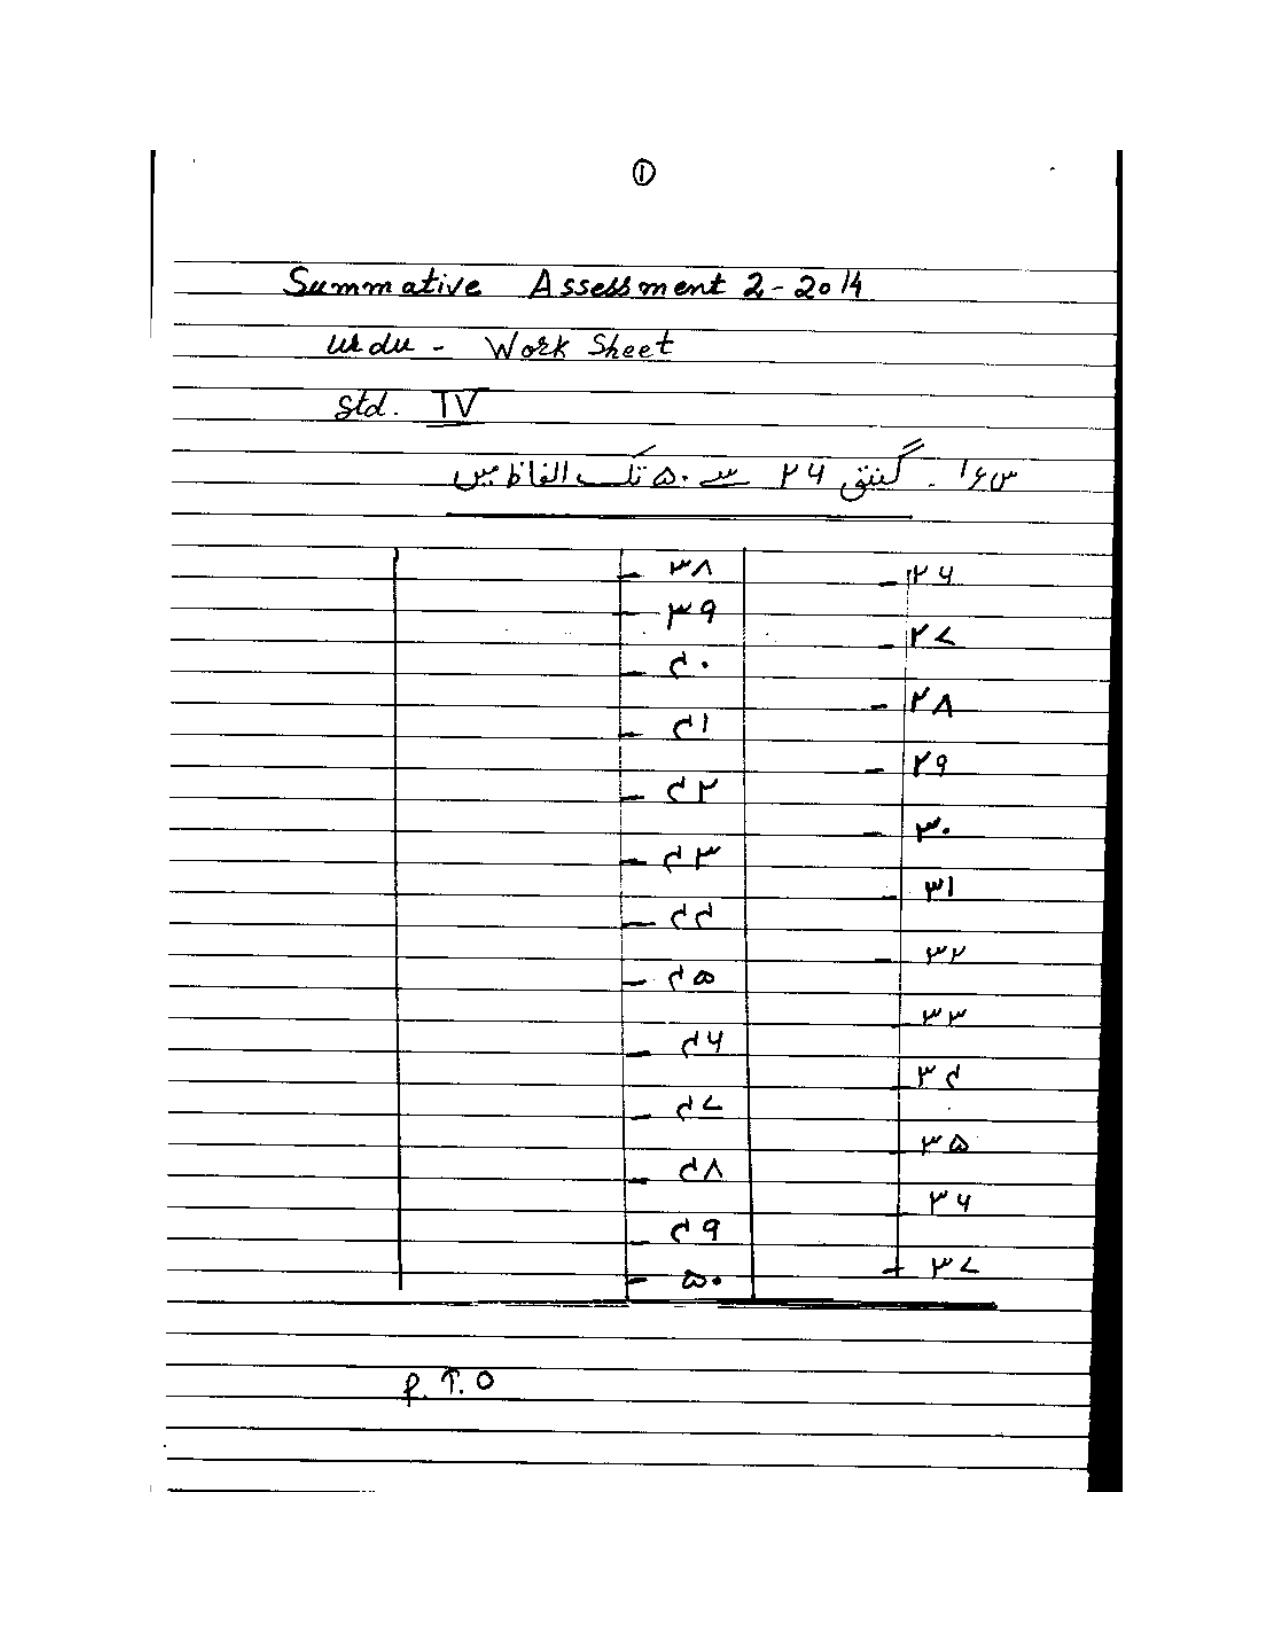 ①
Summative Assessment 2-2014
Urdu - Work Sheet
Std. IV
گنتی ۲۶ سے ۵۰ تک الفاظ میں
۲۶ -
۲۷ -
۲۸ -
۲۹ -
۳۰ -
۳۱ -
۳۲ -
۳۳
۳۴
۳۵
۳۶
۳۷ -
۳۸ -
۳۹ -
۴۰ -
۴۱ -
۴۲ -
۴۳ -
۴۴ -
۴۵ -
۴۶ -
۴۷ -
۴۸ -
۴۹ -
۵۰ -
P.T.O